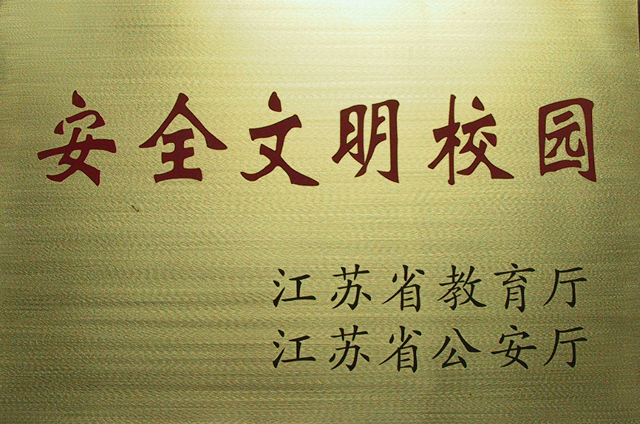 安全文明校园
江苏省教育厅
江苏省公安厅